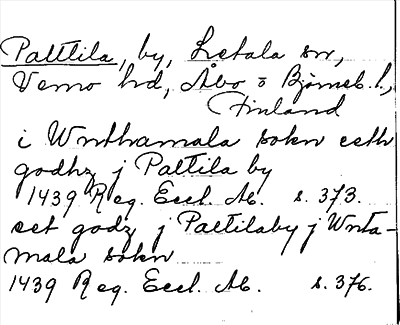 Palttila, by, Letala sn,
Vemo hd, Åbo o Björneb. l.,
Finland
i Wnthamala sokn eeth
godhz j Paltila by
1439 Reg. Eccl. Ab. s. 373.
eet godz j Paltilaby j Wnta-
mala sokn
1439 Reg. Eccl. Ab. s. 376.